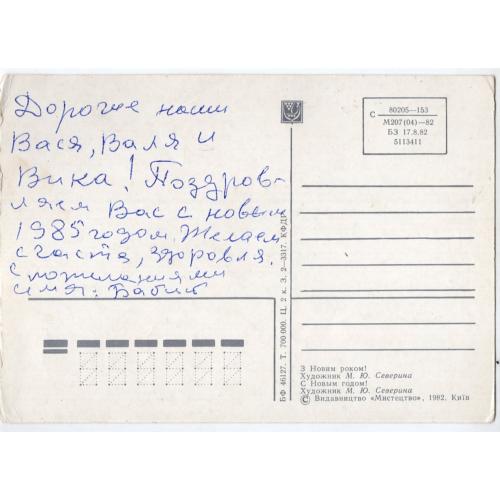 Дорогие наши
Вася, Валя и
Вика! Поздров-
ляем Вас с новым
1985 годом. Желаем
счастя, здоровля.
С пожиланиями
симя: Бабич
С
80205—153
М207(04)—82
БЗ 17.8.82
5113411
БФ 46127. Т. 700 000. Ц. 2 к. З. 2—3317. КФДР
З Новим роком!
Художник М. Ю. Северина
С Новым годом!
Художник М. Ю. Северина
© Видавництво «Мистецтво», 1982. Київ